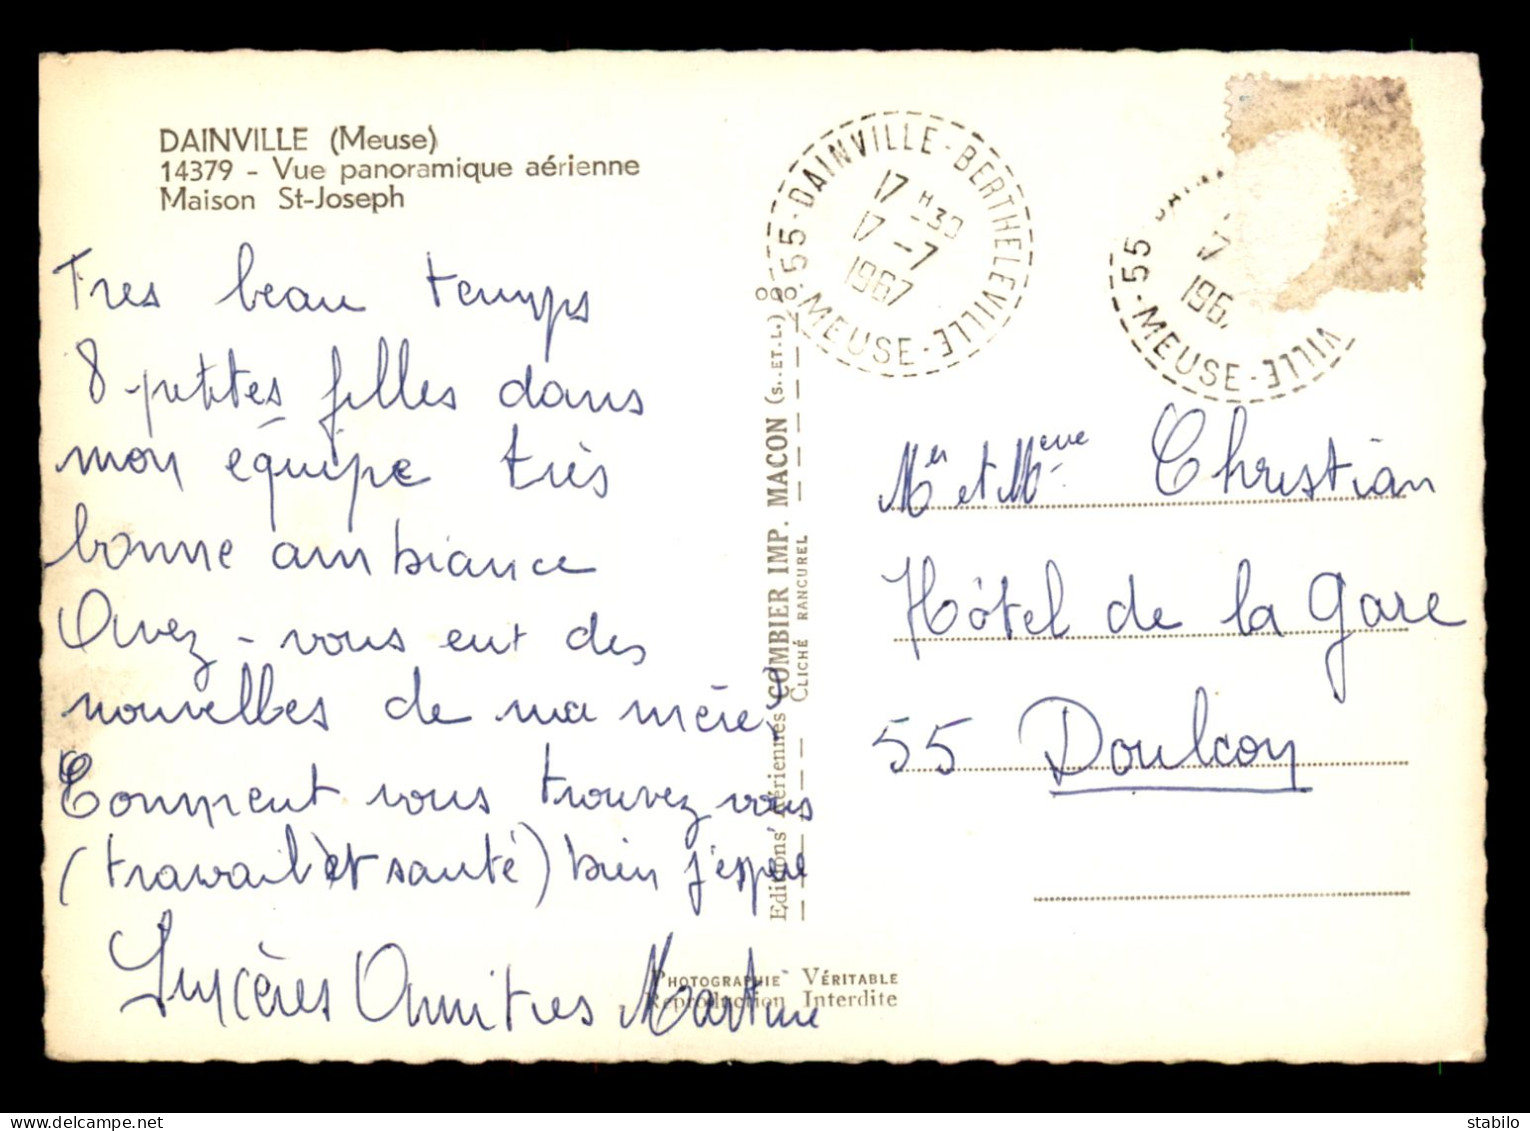 DAINVILLE (Meuse)
14379 - Vue panoramique aérienne
Maison St-Joseph
Tres beau temps
8 petites filles dans
mon équipe très
bonne ambiance
Avez-vous eut des
nouvelles de ma mère,
Comment vous trouvez vous
(travail et santé) bien j'espère
Sincères Amitres Martine
Editions Aériennes COMBIER IMP. MACON (S.-ET-L.)
CLICHÉ RANCUREL
PHOTOGRAPHIE VÉRITABLE
Reproduction Interdite
55·DAINVILLE-BERTHELEVILLE·MEUSE
17 H30
17-7
1967
55
17
196
MEUSE·VILLE
Mer et Meme Christian
Hôtel de la gare
55 Doulcon
delcampe.net
stabilo